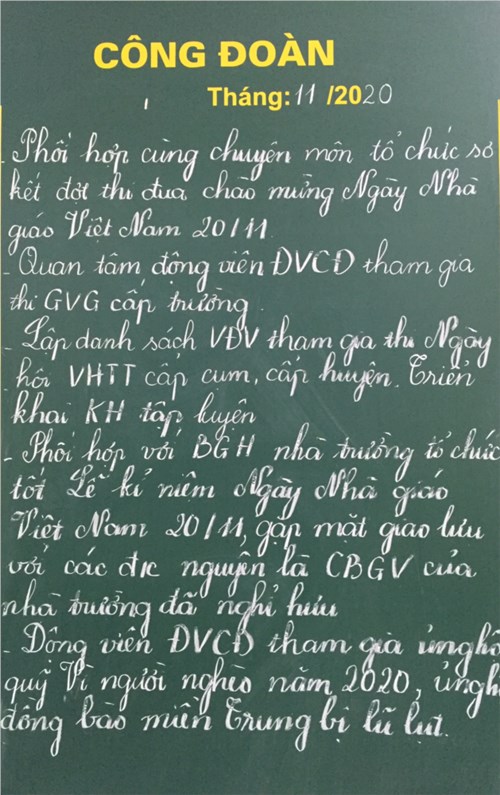 CÔNG ĐOÀN
Tháng: 11 /2020
- Phối hợp cùng chuyên môn tổ chức sơ
kết đợt thi đua chào mừng Ngày Nhà
giáo Việt Nam 20/11.
- Quan tâm động viên ĐVCĐ tham gia
thi GVG cấp trường.
- Lập danh sách VĐV tham gia thi Ngày
hội VHTT cấp cụm, cấp huyện. Triển
khai KH tập luyện
- Phối hợp với BGH nhà trường tổ chức
tốt Lễ kỉ niệm Ngày Nhà giáo
Việt Nam 20/11, gặp mặt giao lưu
với các đ/c nguyên là CBGV của
nhà trường đã nghỉ hưu
- Động viên ĐVCĐ tham gia ủng hộ
quỹ Vì người nghèo năm 2020, ủng h
đồng bào miền Trung bị lũ lụt.